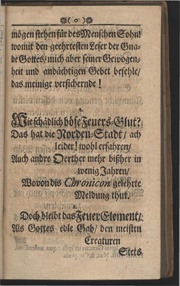 ( o )
mögen stehen für des Menschen Sohn
womit den geehrtesten Leser der Gna-
de Gottes/ mich aber seiner Gewogen-
heit und andächtigen Gebet befehle/
das meinige versichernde!
Wie schädlich böse Feuers-Glut?
Das hat die Norden-Stadt/ ach
leider! wohl erfahren/
Auch andre Oerther mehr bißher in
wenig Jahren/
Wovon dis Chronicon gelehrte
Meldung thut.
Doch bleibt das Feuer Element:
Als Gottes edle Gab/ den meisten
Creaturen
Stets